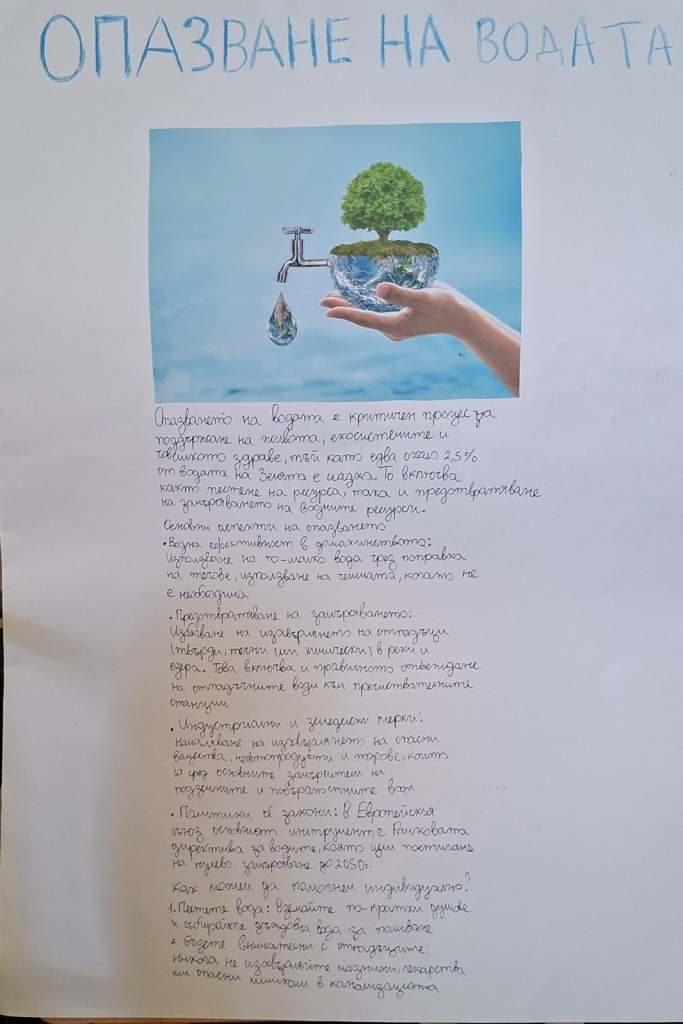 ОПАЗВАНЕ НА ВОДАТА
Опазването на водата е критичен процес за
поддържане на живота, екосистемите и
човешкото здраве, тъй като едва около 2,5%
от водата на Земята е сладка. То включва
както пестене на ресурса, така и предотвратяване
на замърсяването на водните ресурси.
Основни аспекти на опазването
• Водна ефективност в домакинството:
Използване на по-малко вода чрез поправка
на течове, използване на чешмата, когато не
е необходима
• Предотвратяване на замърсяването:
Избягване на изхвърлянето на отпадъци
(твърди, течни или химически) в реки и
езера. Това включва и правилното отвеждане
на отпадъчните води към пречиствателните
станции
• Индустриални и земеделски мерки:
Намаляване на изхвърлянето на опасни
вещества, нефтопродукти и торове, които
са чрез основните замърсители на
подземните и повърхностните води
• Политики и закони: В Европейския
съюз основният инструмент е Рамковата
директива за водите, която цели постигане
на нулево замърсяване до 2050г.
Как можем да помогнем индивидуално?
1. Пестете вода: Вземайте по-кратки душове
и събирайте дъждовна вода за поливане
Бъдете внимателни с отпадъците:
никога не изхвърляйте мазнини, лекарства
или опасни химикали в канализацията